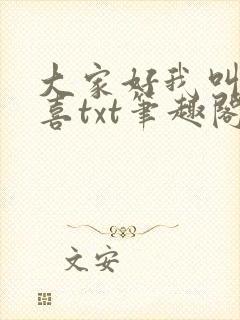 大家好我叫
喜txt笔趣阁
文安